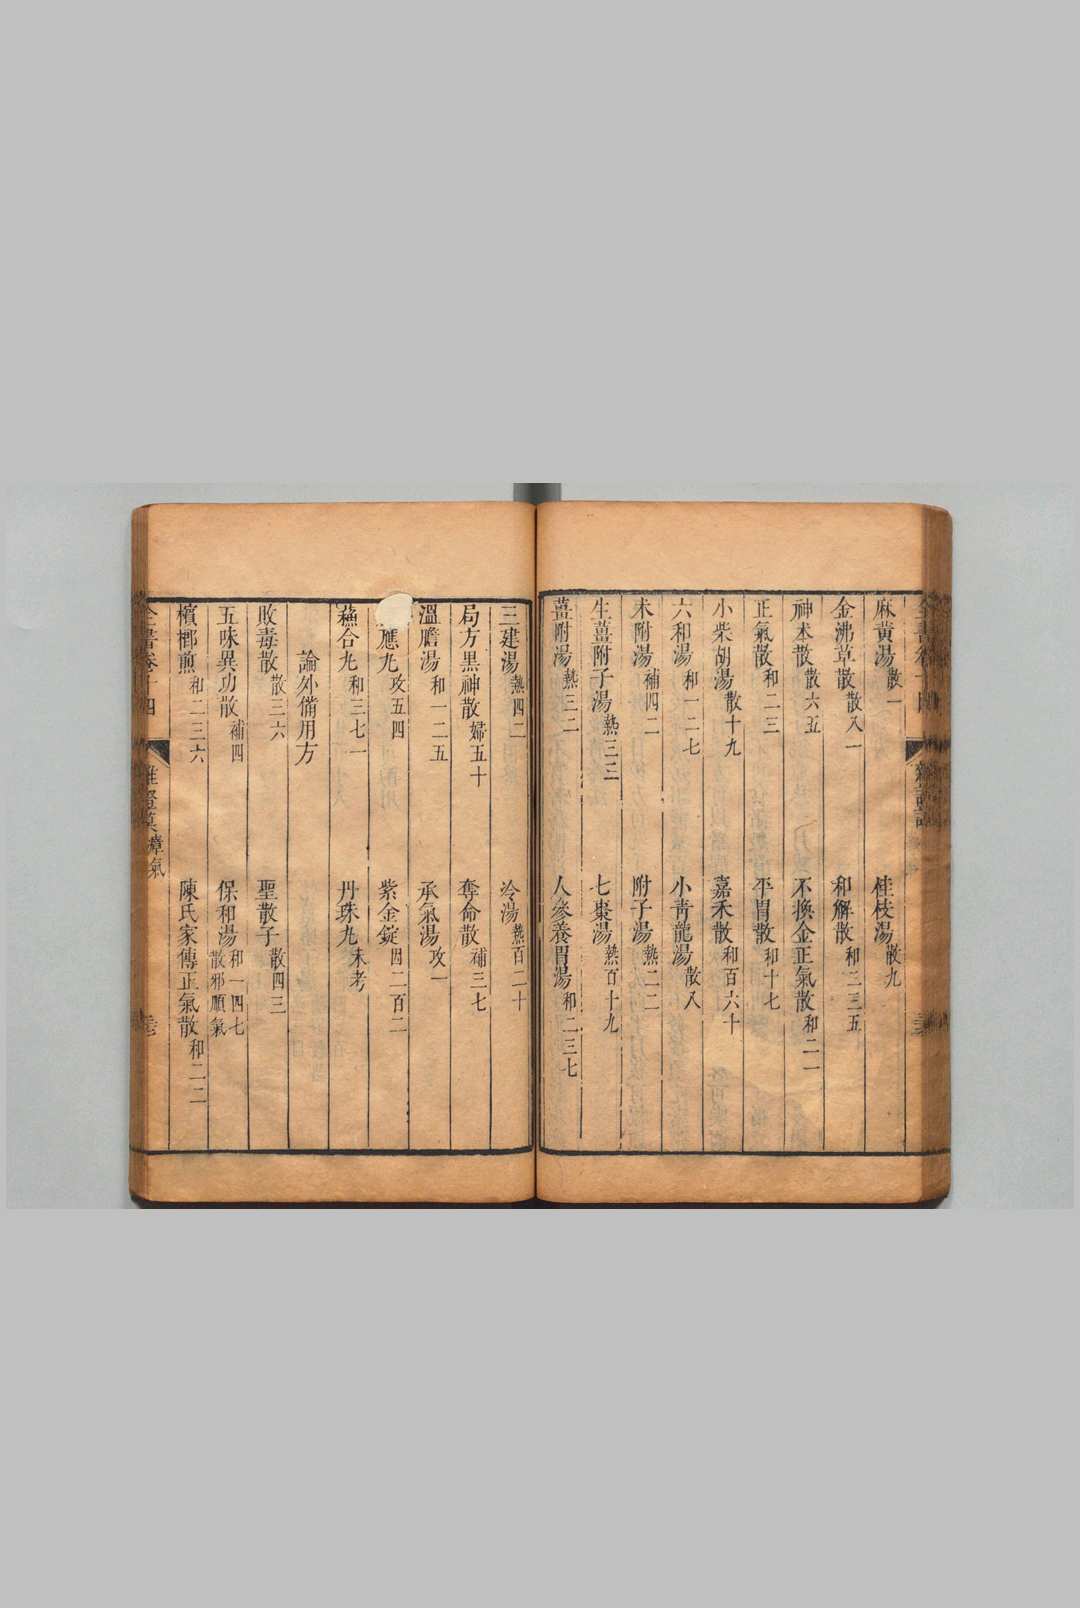 麻黃湯散一　桂枝湯散九
金沸草散散八一　和解散和二三五
神朮散散六五　不換金正氣散和二一
正氣散和二三　平胃散和十七
小柴胡湯散十九　嘉禾散和百六十
六和湯和一二七　小青龍湯散八
朮附湯補四二　附子湯熱二二
生薑附子湯熱三三　七棗湯熱百十九
薑附湯熱三二　人參養胃湯和二三七
三建湯熱四二　冷湯熱百二十
局方黒神散婦五十　奪命散補三七
溫膽湯和一二五　承氣湯攻一
應丸攻五四　紫金錠因二百二
蘓合丸和三七一　丹珠丸未考
論外備用方
敗毒散散三六　聖散子散四三
五味異功散補四　保和湯和一四七散邪順氣
檳榔煎和二三六　陳氏家傳正氣散和二二
全書卷十四　雜證謨　瘴氣